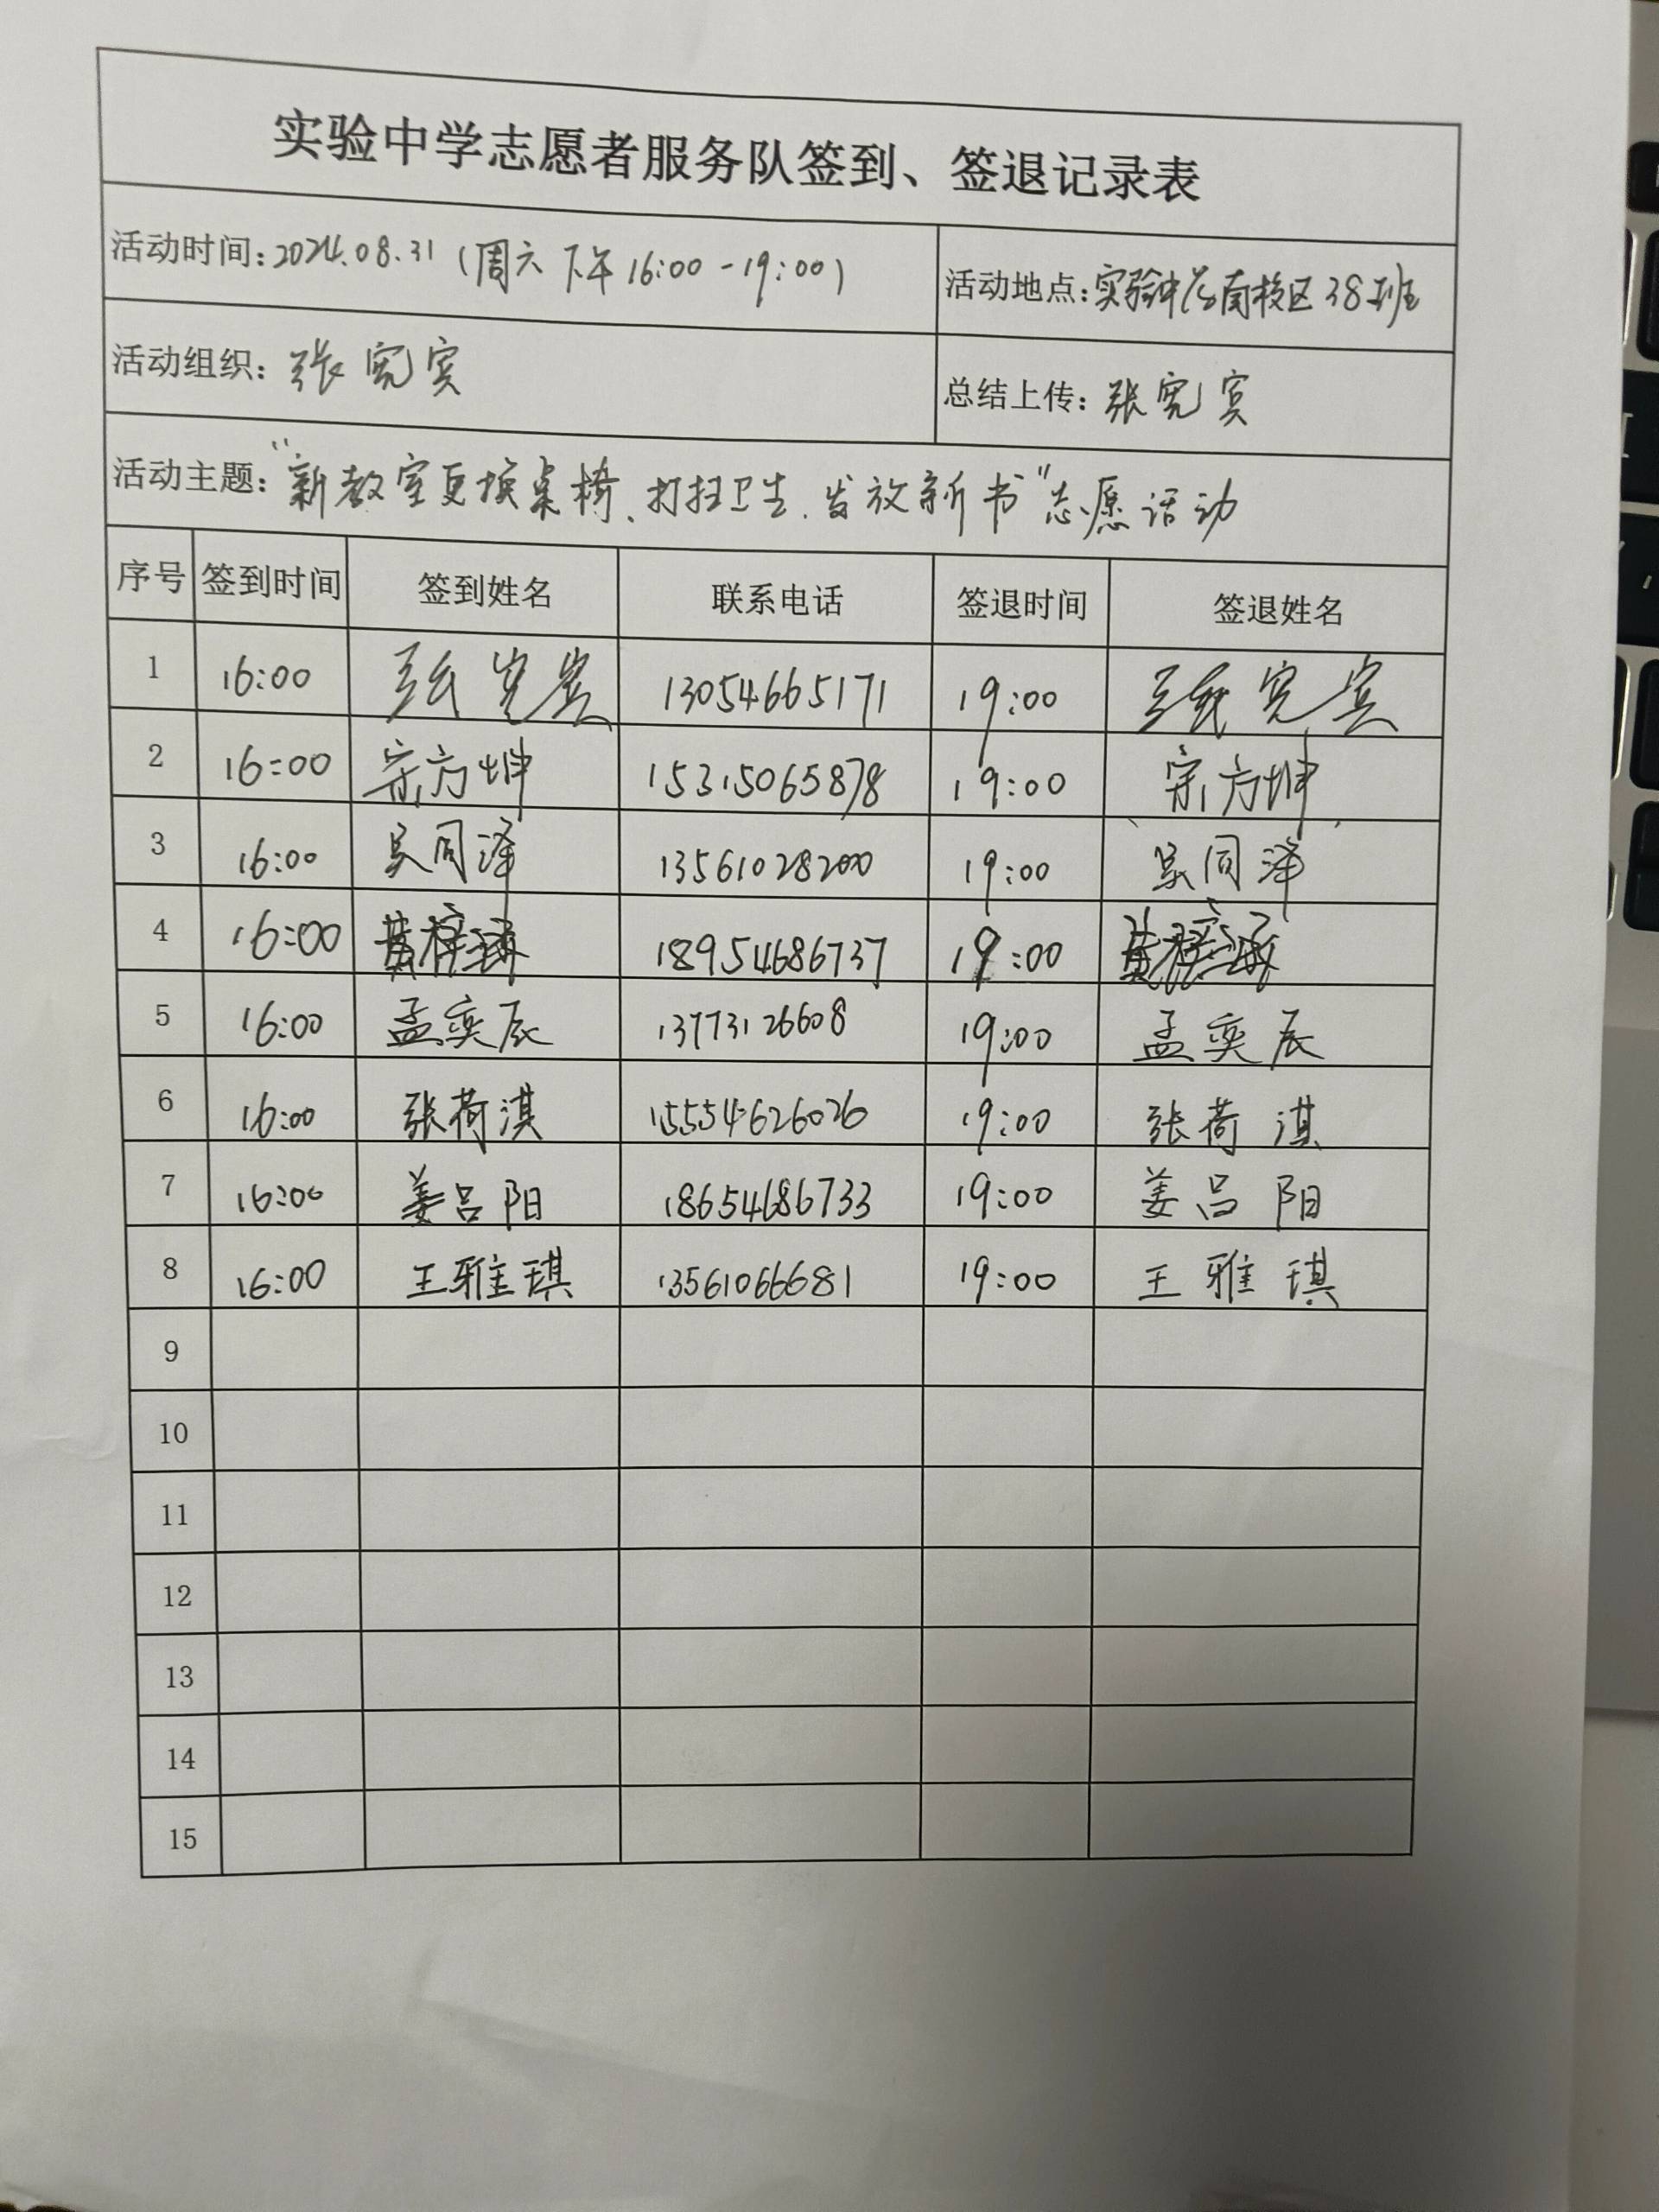 实验中学志愿者服务队签到、签退记录表
活动时间：2024.08.31（周六 下午 16:00-19:00） 活动地点：实验中学南校区38班
活动组织：张宪宾 总结上传：张宪宾
活动主题：“新教室更换桌椅、打扫卫生、发放新书”志愿活动
序号 签到时间 签到姓名 联系电话 签退时间 签退姓名
1 16:00 张宪宾 13054665171 19:00 张宪宾
2 16:00 宗方坤 15315065878 19:00 宗方坤
3 16:00 吴同泽 13561028200 19:00 吴同泽
4 16:00 黄梓涵 18954686737 19:00 黄梓涵
5 16:00 孟奕辰 13773126608 19:00 孟奕辰
6 16:00 张荷淇 15554626026 19:00 张荷淇
7 16:00 姜吕阳 18654686733 19:00 姜吕阳
8 16:00 王雅琪 13561066681 19:00 王雅琪
9
10
11
12
13
14
15